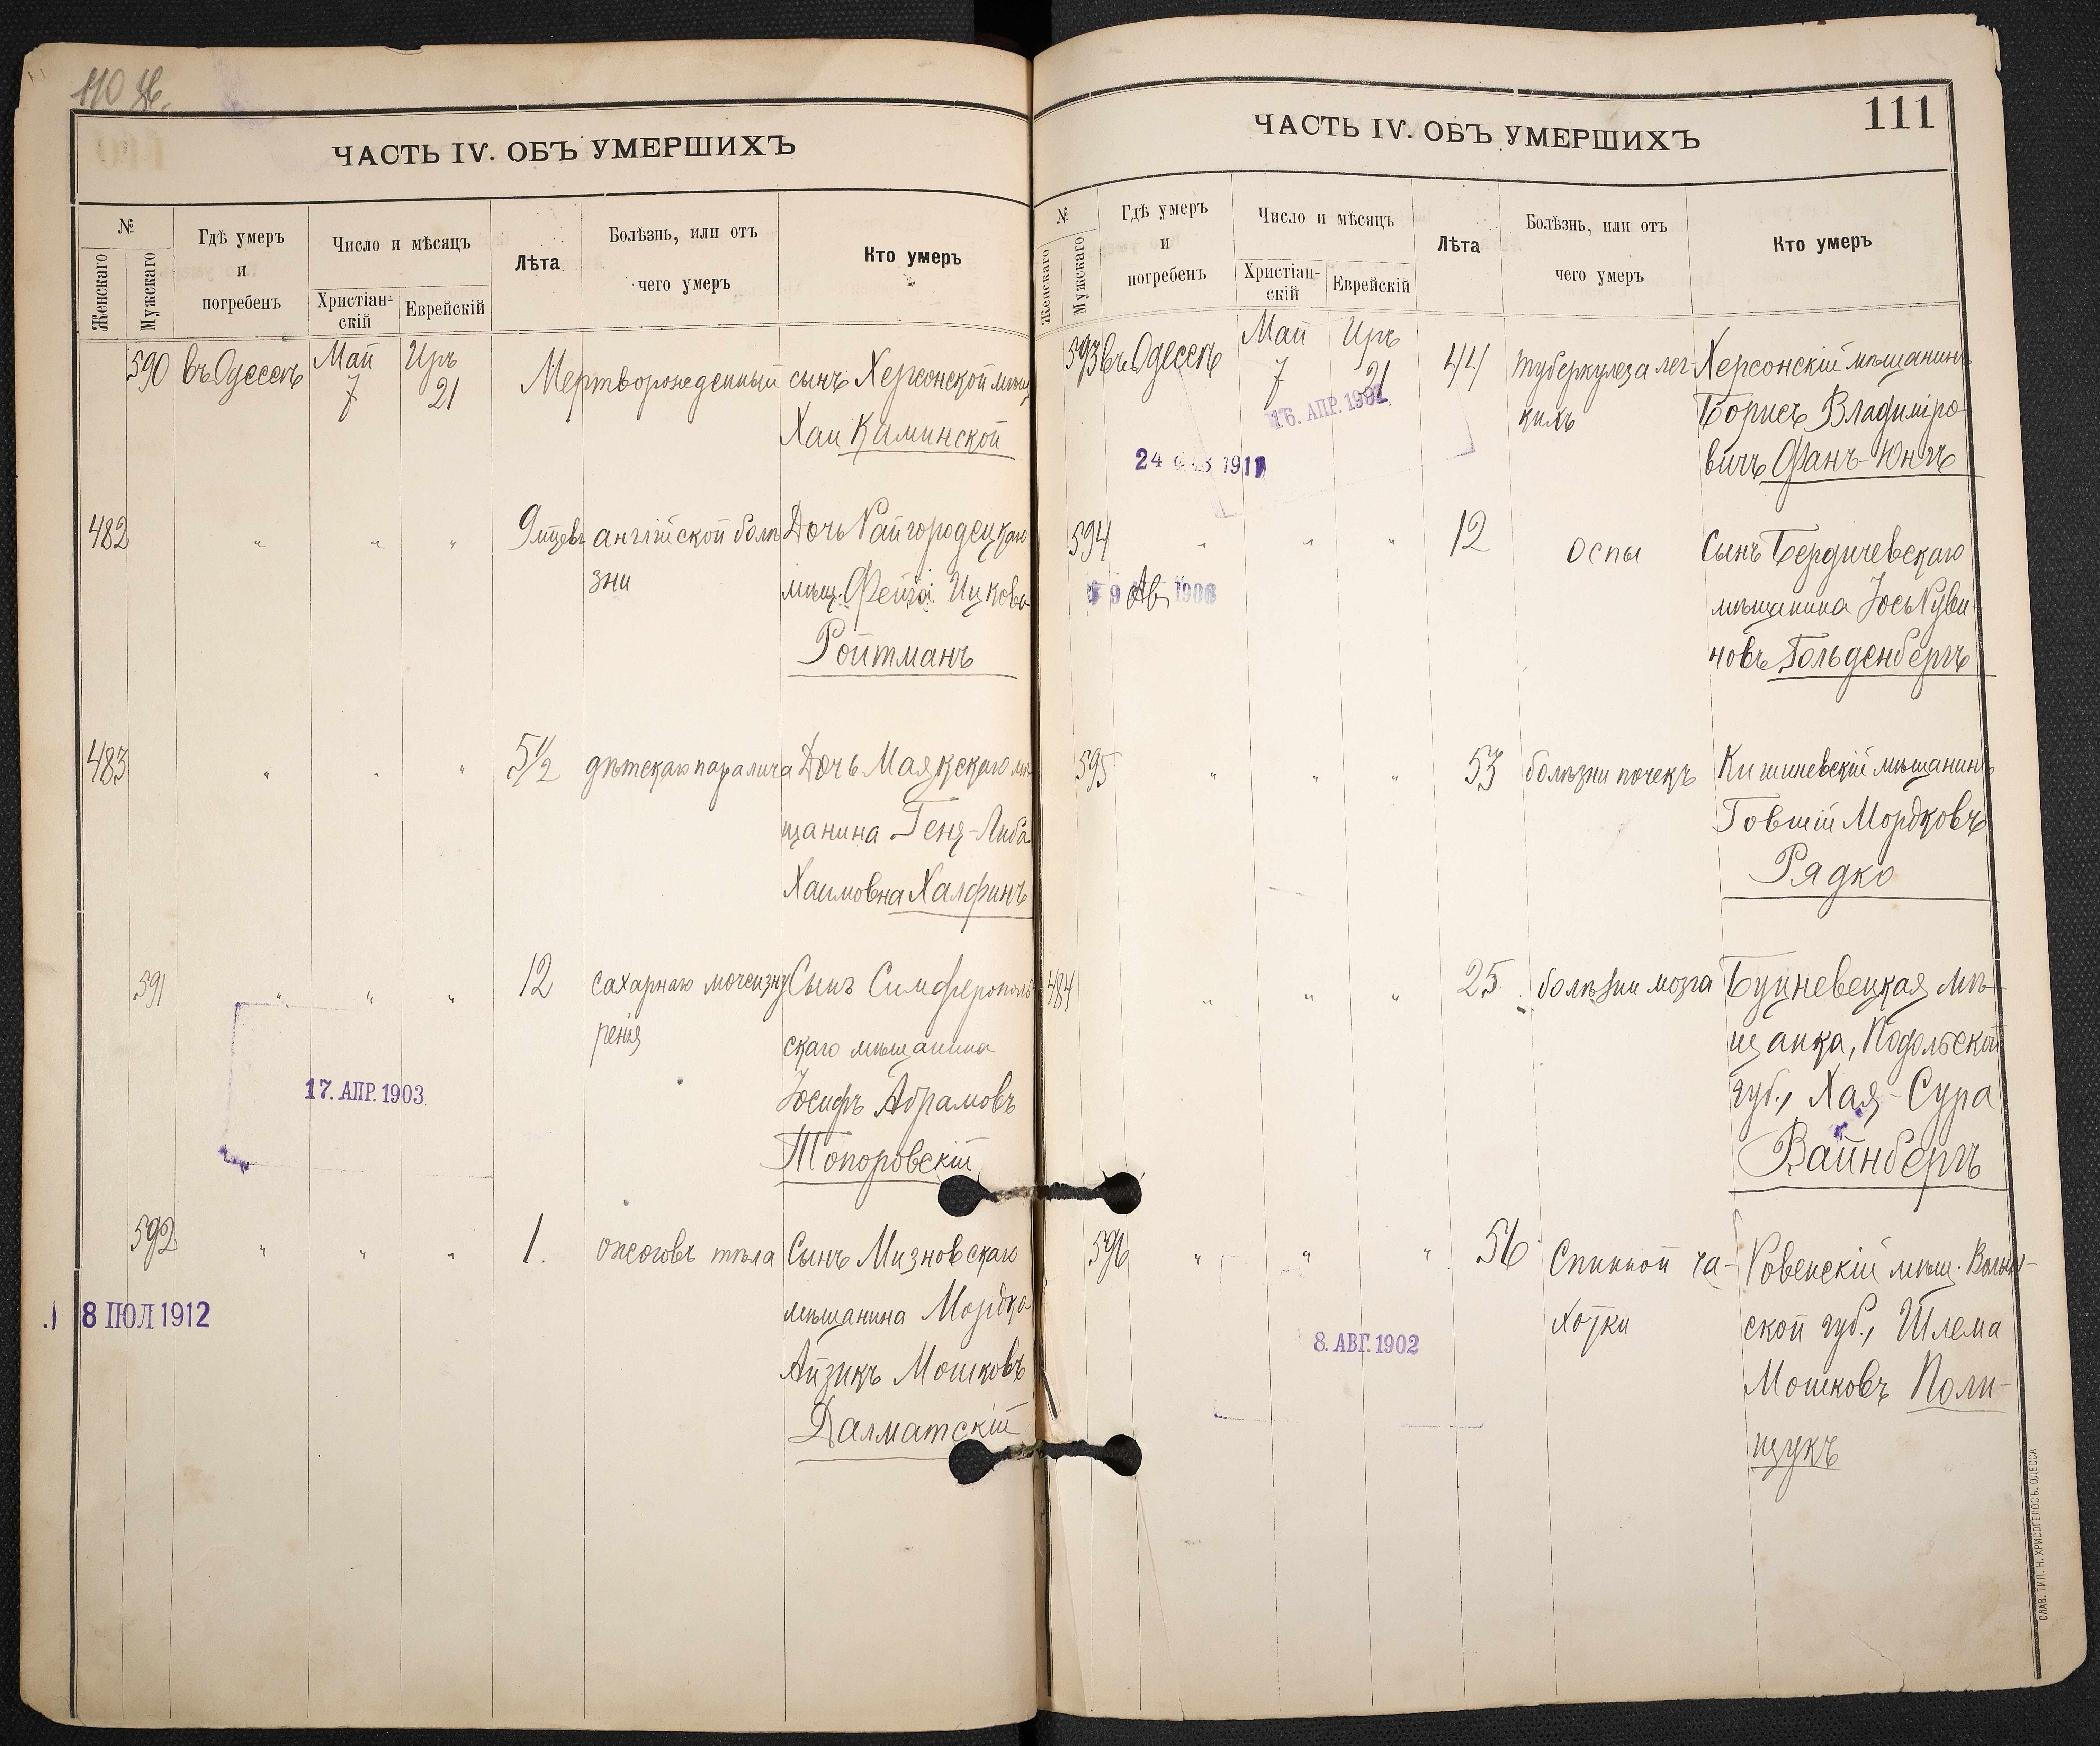 110 об.
ЧАСТЬ IV. ОБЪ УМЕРШИХЪ
№
Женскаго
Мужскаго
Гдѣ умеръ
и
погребенъ
Число и мѣсяцъ
Христіан-
скій
Еврейскій
Лѣта
Болѣзнь, или отъ
чего умеръ
Кто умеръ
590 въ Одессѣ Май Иръ Мертворожденный сынъ Херсонской мѣщ
7 21
Хаи Каминской
482 " " " 9 мцевъ англійской болѣ Дочь Райгородецкаго
зни мѣщ. Фейга Ицкова
Ройтманъ
483 " " " 5 1/2 дѣтскаго паралича Дочь Маякскаго мѣ
щанина Геня-Либа
Хаимовна Халфинъ
591 " " " 12 сахарнаго мочеизну Сынъ Симферополь
ренія скаго мѣщанина
17. АПР. 1903 Іосифъ Абрамовъ
Топоровскій
592 " " " 1. ожоговъ тѣла Сынъ Мизновскаго
8 ІЮЛ 1912 мѣщанина Мордка
Айзикъ Мошковъ
Далматскій
ЧАСТЬ IV. ОБЪ УМЕРШИХЪ
111
№
Женскаго
Мужскаго
Гдѣ умеръ
и
погребенъ
Число и мѣсяцъ
Христіан-
скій
Еврейскій
Лѣта
Болѣзнь, или отъ
чего умеръ
Кто умеръ
593 въ Одессѣ Май Иръ 44 туберкулеза лег- Херсонскій мѣщанинъ
7 21 кихъ Борисъ Владиміро-
16. АПР. 1902
24 1911 вичъ Фанъ-Юнгъ
594 " " " 12 Оспы Сынъ Бердичевскаго
9 Ав 1906 мѣщанина Іось Руви-
новъ Гольденбергъ
595 " " " 53 болѣзни почекъ Кишиневскій мѣщанинъ
Говшій Мордковъ
Рядко
484 " " " 25 болѣзни мозга мѣ-
щанка, Подольской
губ., Хая-Сура
Вайнбергъ
596 " " " 56 Спинной ча- Ровенскій мѣщ. Волын-
хотки ской губ., Шлема
8. АВГ. 1902
Мошковъ Поли-
щукъ
СЛАВ. ТИП. Н. ХРИСОГЕЛОСЪ, ОДЕССА